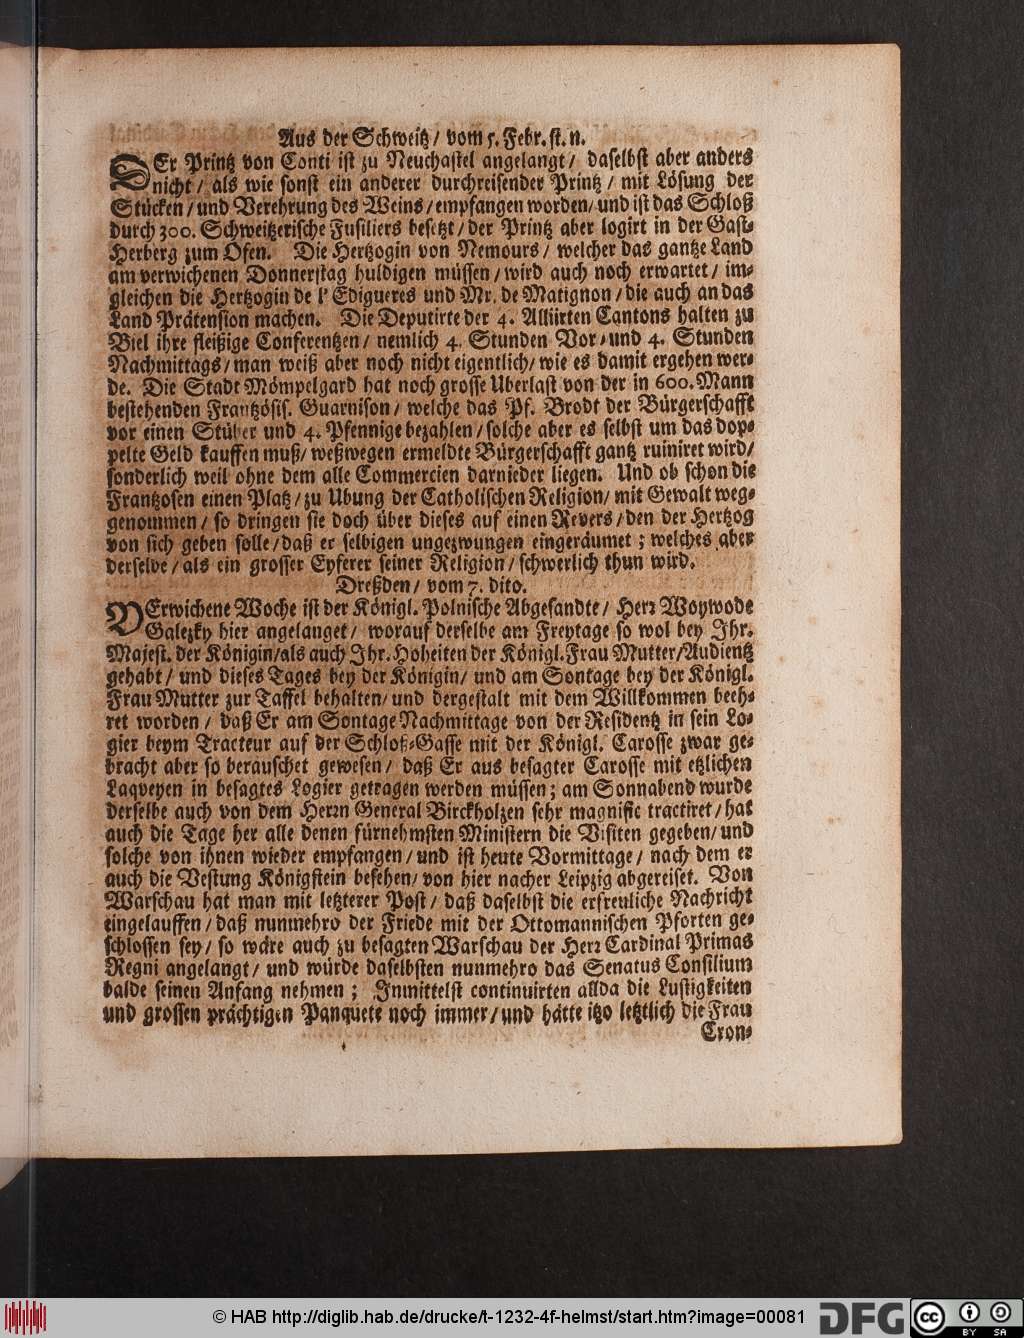 Aus der Schweitz / vom 5. Febr. st. n.
DEr Printz von Conti ist zu Neuchastel angelangt / daselbst aber anders
nicht / als wie sonst ein anderer durchreisender Printz / mit Lösung der
Stücken / und Verehrung des Weins / empfangen worden / und ist das Schloß
durch 300. Schweitzerische Fusiliers besetzt / der Printz aber logirt in der Gast-
Herberg zum Ofen. Die Hertzogin von Nemours / welcher das gantze Land
am verwichenen Donnerstag huldigen müssen / wird auch noch erwartet / im-
gleichen die Hertzogin de l' Edigueres und Mr. de Matignon / die auch an das
Land Prätension machen. Die Deputirte der 4. Alliirten Cantons halten zu
Biel ihre fleißige Conferentzen / nemlich 4. Stunden Vor- und 4. Stunden
Nachmittags / man weiß aber noch nicht eigentlich / wie es damit ergehen wer-
de. Die Stadt Mömpelgard hat noch grosse Uberlast von der in 600. Mann
bestehenden Frantzösis. Guarnison / welche das Pf. Brodt der Bürgerschafft
vor einen Stüber und 4. Pfennige bezahlen / solche aber es selbst um das dop-
pelte Geld kauffen muß / weßwegen ermeldte Bürgerschafft gantz ruiniret wird /
sonderlich weil ohne dem alle Commercien darnieder liegen. Und ob schon die
Frantzosen einen Platz / zu Ubung der Catholischen Religion / mit Gewalt weg-
genommen / so dringen sie doch über dieses auf einen Revers / den der Hertzog
von sich geben solle / daß er selbigen ungezwungen eingeräumet ; welches aber
derselbe / als ein grosser Eyferer seiner Religion / schwerlich thun wird.
Dreßden / vom 7. dito.
VErwichene Woche ist der Königl. Polnische Abgesandte / Herr Woywode
Galezky hier angelanget / worauf derselbe am Freytage so wol bey Ihr.
Majest. der Königin / als auch Ihr. Hoheiten der Königl. Frau Mutter / Audientz
gehabt / und dieses Tages bey der Königin / und am Sontage bey der Königl.
Frau Mutter zur Taffel behalten / und dergestalt mit dem Willkommen beeh-
ret worden / daß Er am Sontage Nachmittage von der Residentz in sein Lo-
gier beym Tracteur auf der Schloß-Gasse mit der Königl. Carosse zwar ge-
bracht aber so berauschet gewesen / daß Er aus besagter Carosse mit etzlichen
Laqveyen in besagtes Logier getragen werden müssen ; am Sonnabend wurde
derselbe auch von dem Herrn General Birckholzen sehr magnific tractiret / hat
auch die Tage her alle denen fürnehmsten Ministern die Visiten gegeben / und
solche von ihnen wieder empfangen / und ist heute Vormittage / nach dem er
auch die Vestung Königstein besehen / von hier nacher Leipzig abgereiset. Von
Warschau hat man mit letzterer Post / daß daselbst die erfreuliche Nachricht
eingelauffen / daß nunmehro der Friede mit der Ottomannischen Pforten ge-
schlossen sey / so wäre auch zu besagten Warschau der Herr Cardinal Primas
Regni angelangt / und würde daselbsten nunmehro das Senatus Consilium
balde seinen Anfang nehmen ; Inmittelst continuirten allda die Lustigkeiten
und grossen prächtigen Panquete noch immer / und hätte itzo letztlich die Frau
Cron-
© HAB http://diglib.hab.de/drucke/t-1232-4f-helmst/start.htm?image=00081 DFG cc BY SA